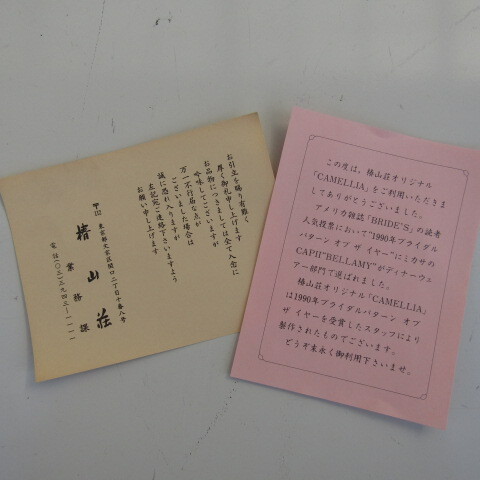 お引立を賜り有難く
厚く御礼申し上げます
お品物につきましては全て入念に
吟味してございますが
万一不行届な点が
ございました場合は
誠に恐れ入りますが
左記宛ご連絡下さいますよう
お願い申し上げます
東京都文京区関口二丁目十番八号
椿山荘
業務課
電話(〇三)三九四三―一一一一
この度は、椿山荘オリジナル
「CAMELLIA」をご利用いただきま
してありがとうございました。
アメリカ雑誌「BRIDE'S」の読者
人気投票において"1990年ブライダル
パターン オブ ザ イヤー"にミカサの
CAPII"BELLAMY"がディナーウェ
アー部門で選ばれました。
椿山荘オリジナル「CAMELLIA」
は1990年ブライダルパターン オブ
ザ イヤーを受賞したスタッフにより
製作されたものでございます。
どうぞ末永く御利用下さいませ。